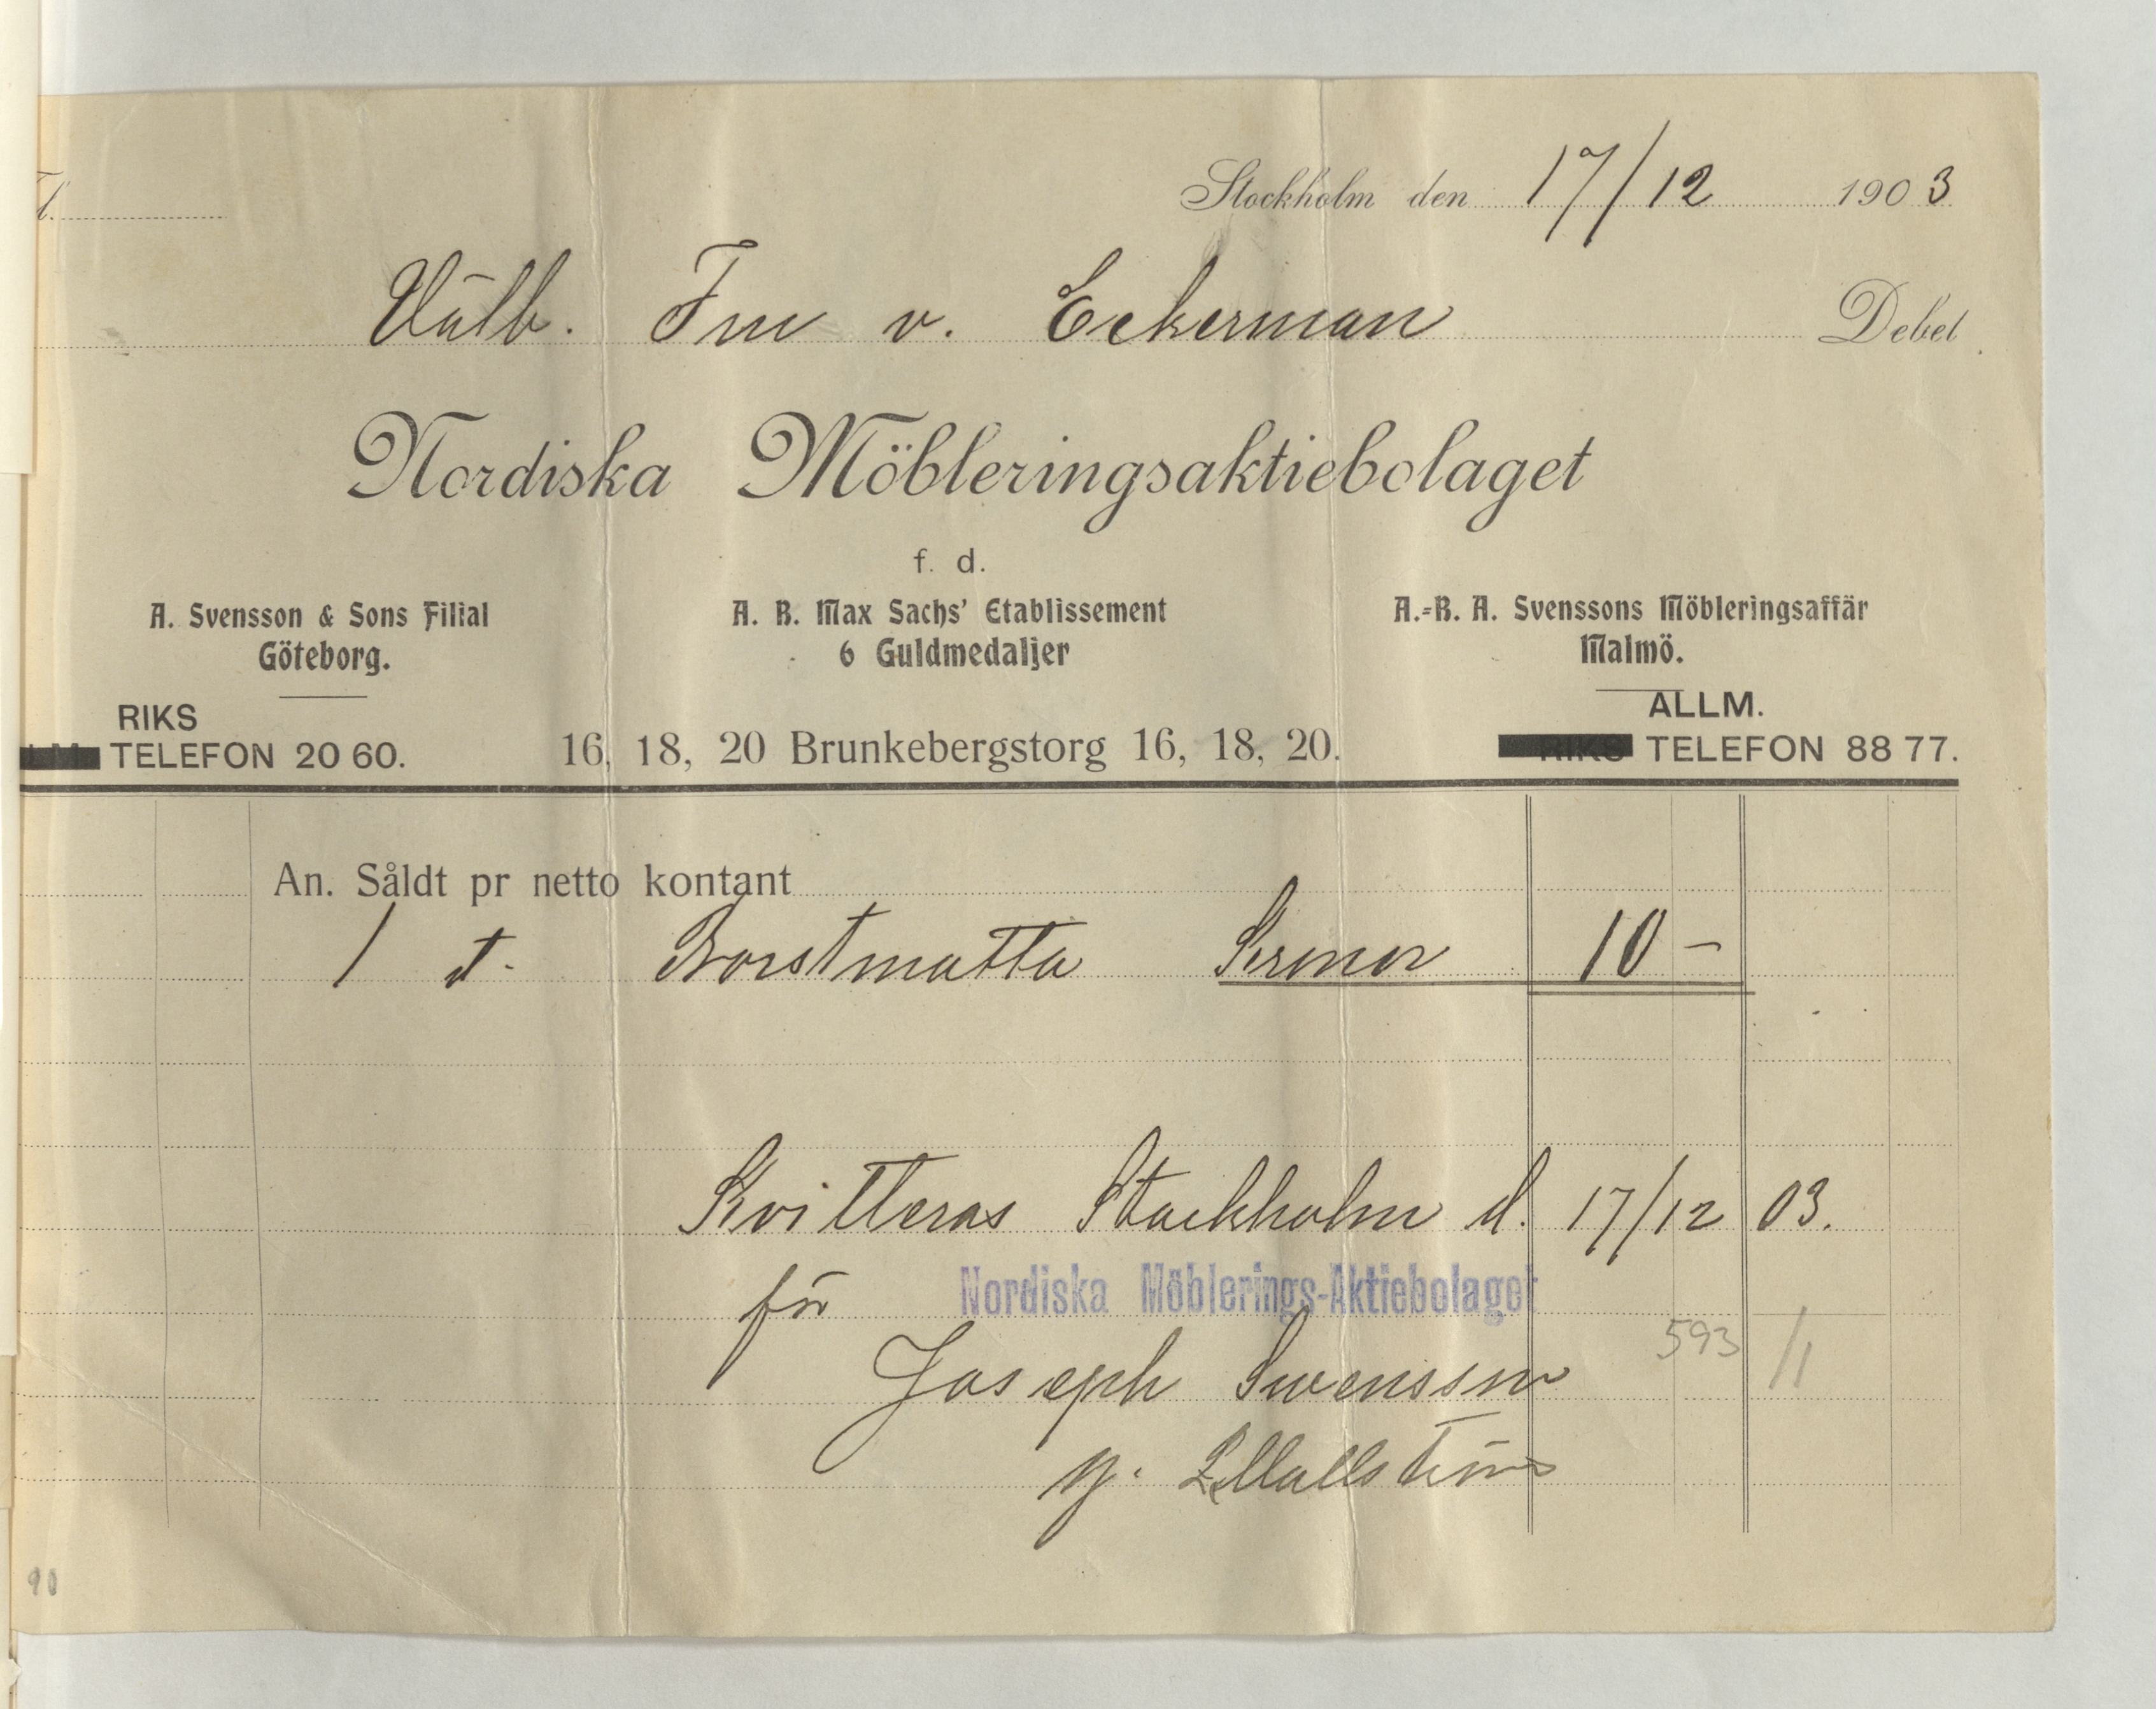 Stockholm den 17/12 1903
Välb. Fru v. Eckerman Debet
Nordiska Möbleringsaktiebolaget
f. d.
A. Svensson & Sons Filial
Göteborg.
A. B. Max Sachs' Etablissement
6 Guldmedaljer
A.-B. A. Svenssons Möbleringsaffär
Malmö.
RIKS
TELEFON 20 60.
16, 18, 20 Brunkebergstorg 16, 18, 20.
ALLM.
RIKS TELEFON 88 77.
An. Såldt pr netto kontant
1 st. Borstmatta Kronor 10 -
Kvitteras Stockholm d. 17/12 03.
för Nordiska Möblerings-Aktiebolaget
593
Joseph Svensson
90